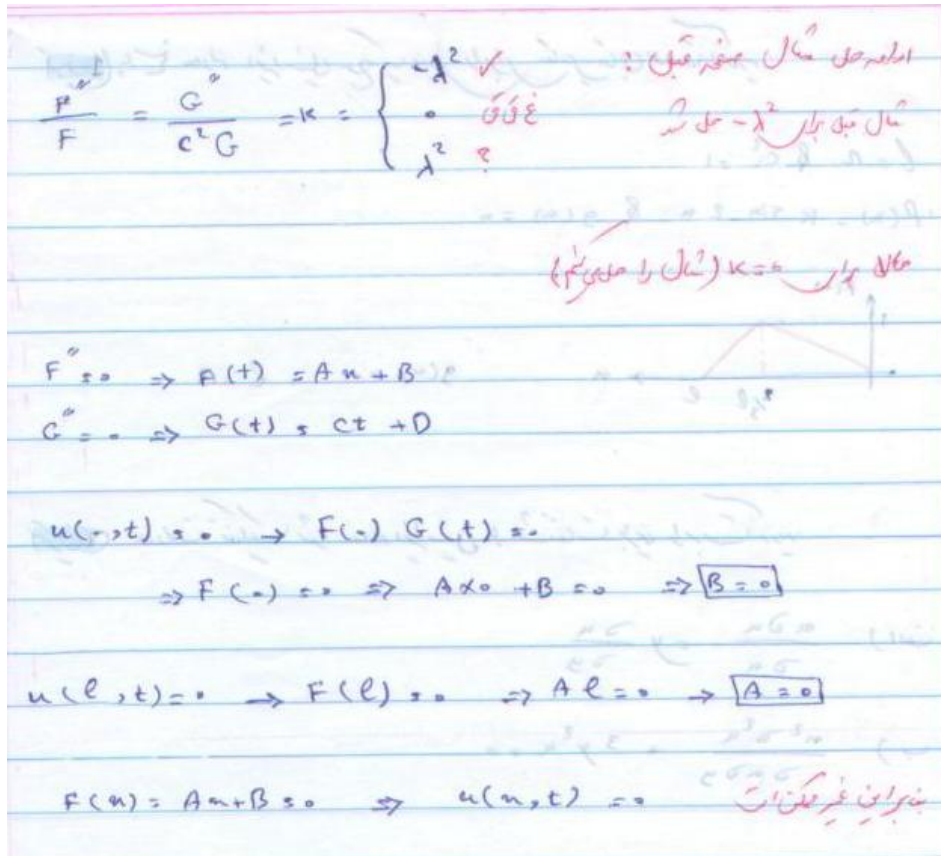 ادامه حل مثال صفحه قبل :
F″/F = G″/c²G = K = { -λ² ✓
0 غ ق ق
λ² ?
مثال قبل برای -λ² حل شد
حالا برای K=0 (مثال را حل می‌کنیم)
F″ = 0 ⇒ F(t) = Ax + B
G″ = 0 ⇒ G(t) = ct + D
u(0,t) = 0 → F(0) G(t) = 0
⇒ F(0) = 0 ⇒ A×0 + B = 0 ⇒ B = 0
u(l,t) = 0 → F(l) = 0 ⇒ Al = 0 → A = 0
F(x) = Ax+B = 0 ⇒ u(x,t) = 0 بنابراین غیر ممکن است